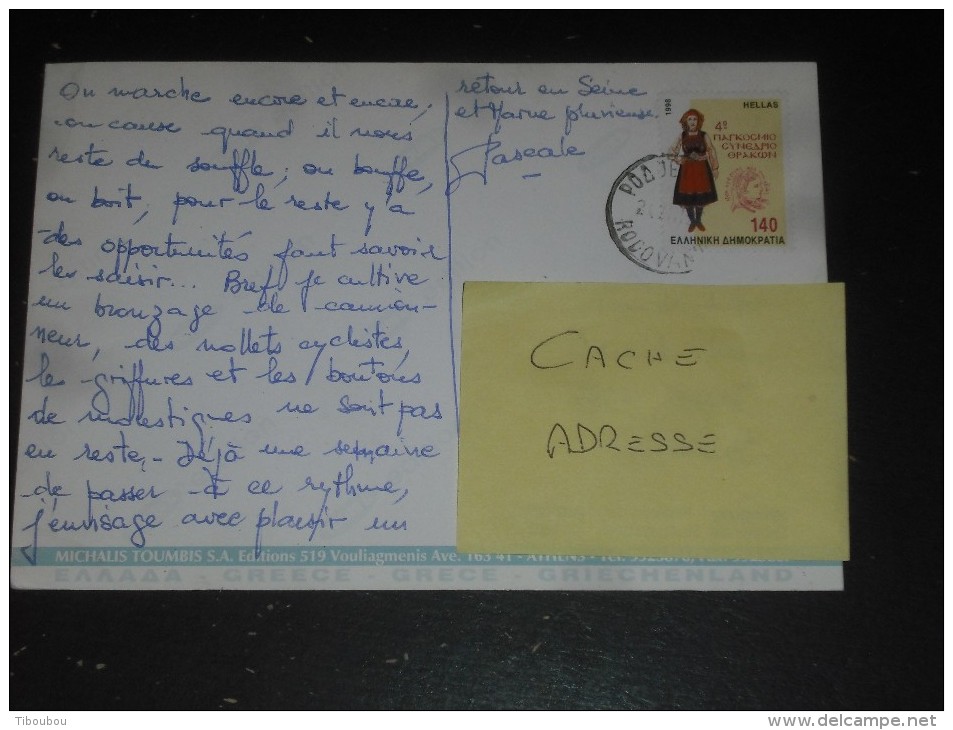 On marche encore et encore,
on cause quand il nous
reste du souffle; on bouffe,
on boit, pour le reste y'a
des opportunités faut savoir
les saisir... Bref je cultive
un bronzage de camion-
neur, des mollets cyclistes,
les griffures et les boutons
de moustiques ne sont pas
en reste. - Déjà une semaine
de passer à ce rythme,
j'envisage avec plaisir un
retour en Seine
et Marne pluvieuse.
Pascale
1998
HELLAS
4º
ΠΑΓΚΟΣΜΙΟ
ΣΥΝΕΔΡΙΟ
ΘΡΑΚΩΝ
140
ΕΛΛΗΝΙΚΗ ΔΗΜΟΚΡΑΤΙΑ
CACHE
ADRESSE
MICHALIS TOUMBIS S.A. Editions 519 Vouliagmenis Ave. 163 41 - ATHENS - Tel.
ΕΛΛΑΔΑ - GREECE - GRECE - GRIECHENLAND
Tiboubou
www.delcampe.net